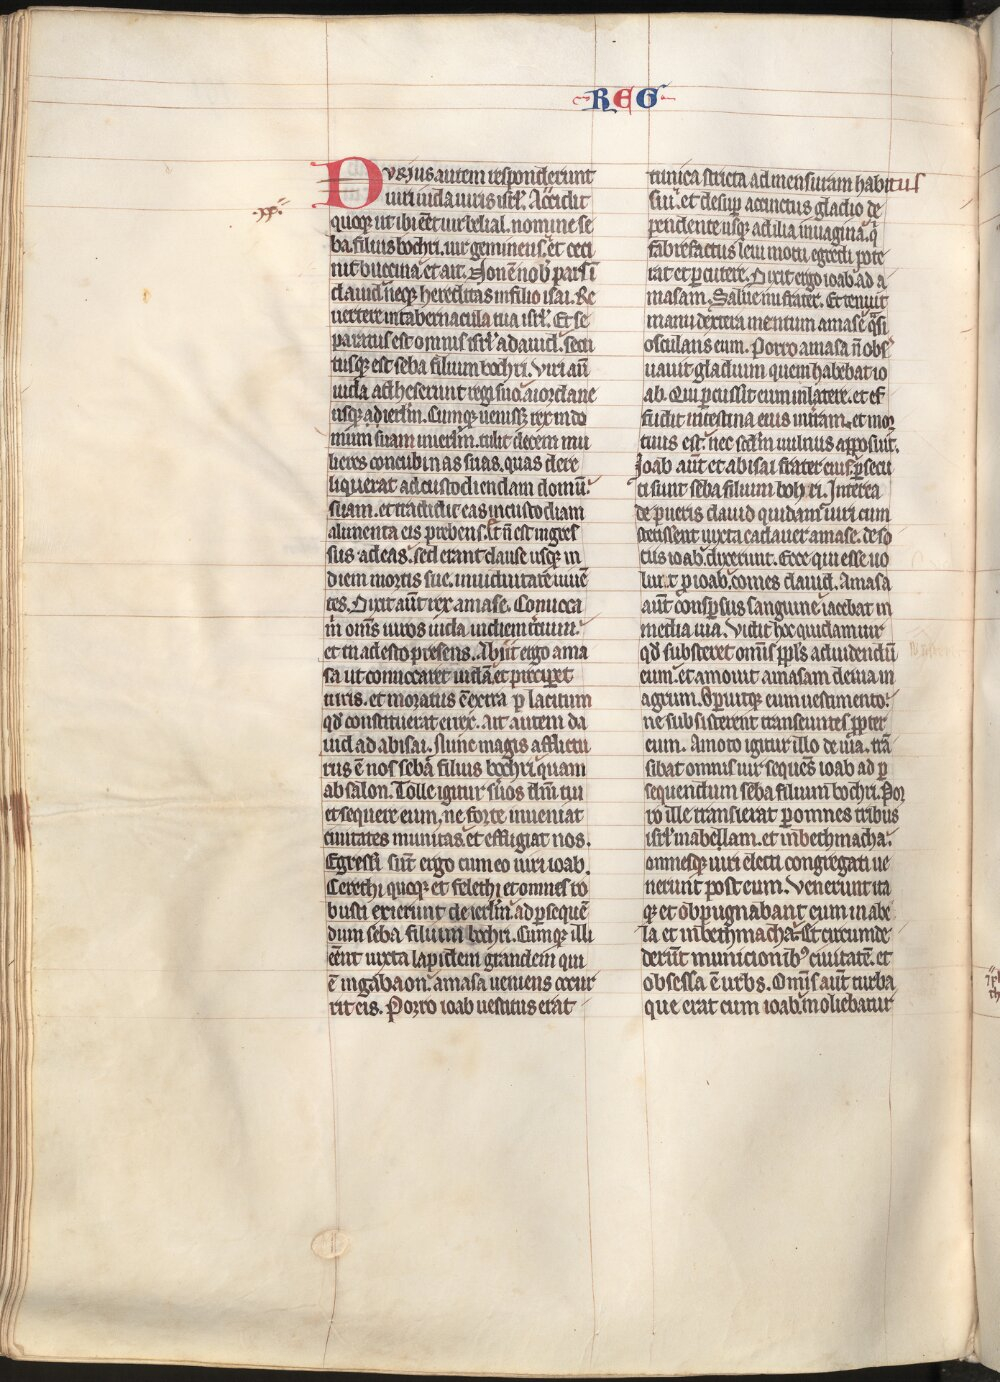 REG
Durius autem responderunt
uiri iuda uiris isrł. Accidit
.xx.
quoqꝫ ut ibi eēt uir belial. nomine se
ba. filius bochri. uir gemineus. et ceci
nit buccina et ait. Non ē nob̄ pars ī
dauid. neqꝫ hereditas in filio isai. Re
uertere in tabernacula tua isrł. Et se
paratus est omnis isrł a dauid. secu
tusqꝫ est seba filium bochri. Viri aūt
iuda adheserunt regi suo. a iordane
usqꝫ ad ierłm. Cumqꝫ uenisset rex in do
mum suam in ierłm. tulit decem mu
lieres concubinas suas. quas dere
liquerat ad custodiendam domū.
suam. et tradidit eas in custodiam
alimenta eis prebens. Et n̄ est ingres
sus ad eas. sed erant clause usqꝫ in
diem mortis sue. in uiduitate uiuē
tes. Dixit aūt rex amase. Conuoca
m̄ om̄s uiros iuda in diem tercium.
et tu adesto presens. Abiit ergo ama
sa ut conuocaret iudā. et
et moratus ē extra placitum
qd̄ constituerat ei rex. Ait autem da
uid ad abisai. Nunc magis afflictu
rus ē nos seba filius bochri quam
absalon. Tolle igitur suos dn̄i tui
et sequere eum, ne forte inueniat
ciuitates munitas. et effugiat nos.
Egressi sūt ergo cum eo uiri ioab.
Cerethi quoqꝫ et felethi et omnes ro
busti exierunt de ierłm ad ꝑsequē
dum seba filium bochri. Cumqꝫ illi
eēnt iuxta lapidem grandem qui
ē in gabaon. amasa ueniens occur
rit eis. Porro ioab uestitus erat
tunica stricta ad mensuram habitus
sui. et desuꝑ accinctus gladio de
pendente usqꝫ ad ilia in uagina. q̄
fabrefactus leui motu egredi pote
rat et ꝑcutere. Dixit ergo ioab ad a
masam. Salue mi frater. Et tenuit
manu dextera mentum amase q̄si
osculans eum. Porro amasa n̄ obs̄
uauit gladium quem habebat io
ab. Qui ꝑcussit eum in latere. et ef
fudit intestina eius in terram. et mor
tuus est. nec scd̄m uulnus apposuit.
Joab aūt et abisai frater eius ꝑsecu
ti sunt seba filium bohri. Interea
de pueris dauid quidam uiri cum
stetissent iuxta cadauer amase. de so
ciis ioab dixerunt. Ecce qui esse uo
luit ꝓ ioab. comes dauid. Amasa
aūt conspersus sanguine iacebat in
media uia. Vidit hoc quidam uir
qd̄ subsisteret om̄is ppl̄s ad uidendū
eum. et amouit amasam de uia in
agrum. Operuitqꝫ eum uestimento.
ne subsisterent transeuntes ꝓpter
eum. Amoto igitur illo de uia. trā
sibat omnis uir sequēs ioab ad ꝑ
sequendum seba filium bochri. Por
ro ille transierat ꝑ omnes tribus
isrł in abellam. et in bethmacha.
omnesqꝫ uiri electi congregati ue
nerunt post eum. Venerunt ita
qꝫ et obpugnabant eum in abe
la et in bethmacha. Et circumde
derūt municionibꝰ ciuitatē. et
obsessa ē urbs. Om̄is aūt turba
que erat cum ioab. moliebatur